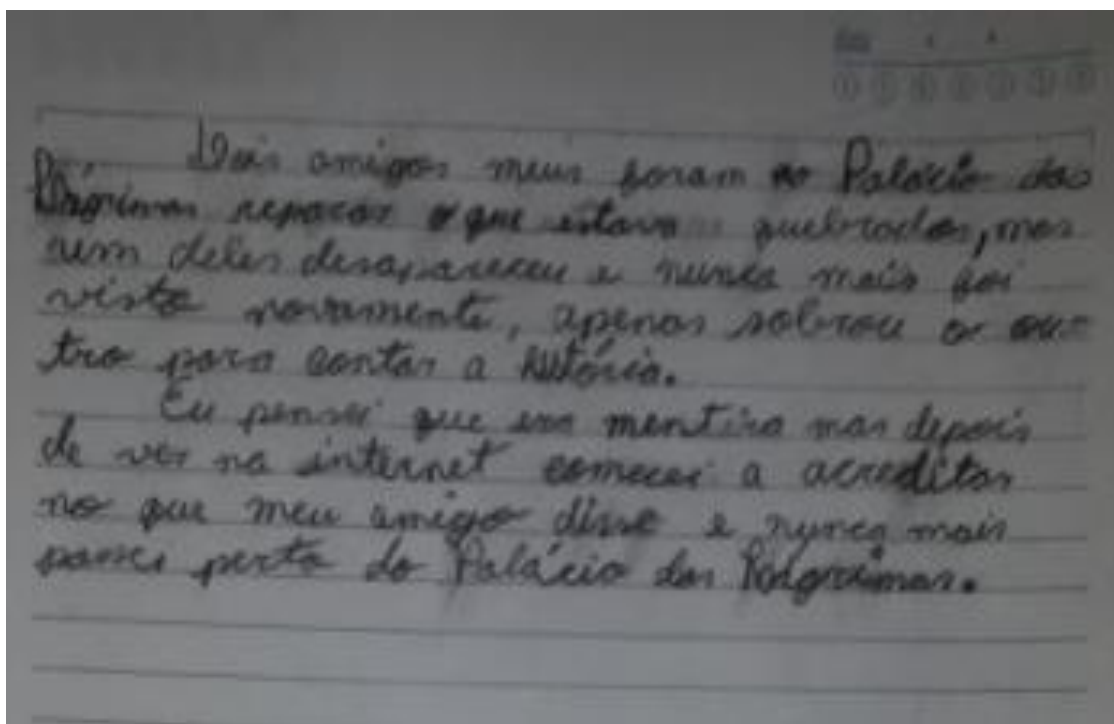 Dois amigos meus foram no Palácio das
Lágrimas reparar o que estava quebrados, mas
um deles desapareceu e nunca mais foi
visto novamente, apenas sobrou o ou-
tro para contar a história.
Eu pensei que era mentira mas depois
de ver na internet comecei a acreditar
no que meu amigo disse e nunca mais
passei perto do Palácio das Lágrimas.